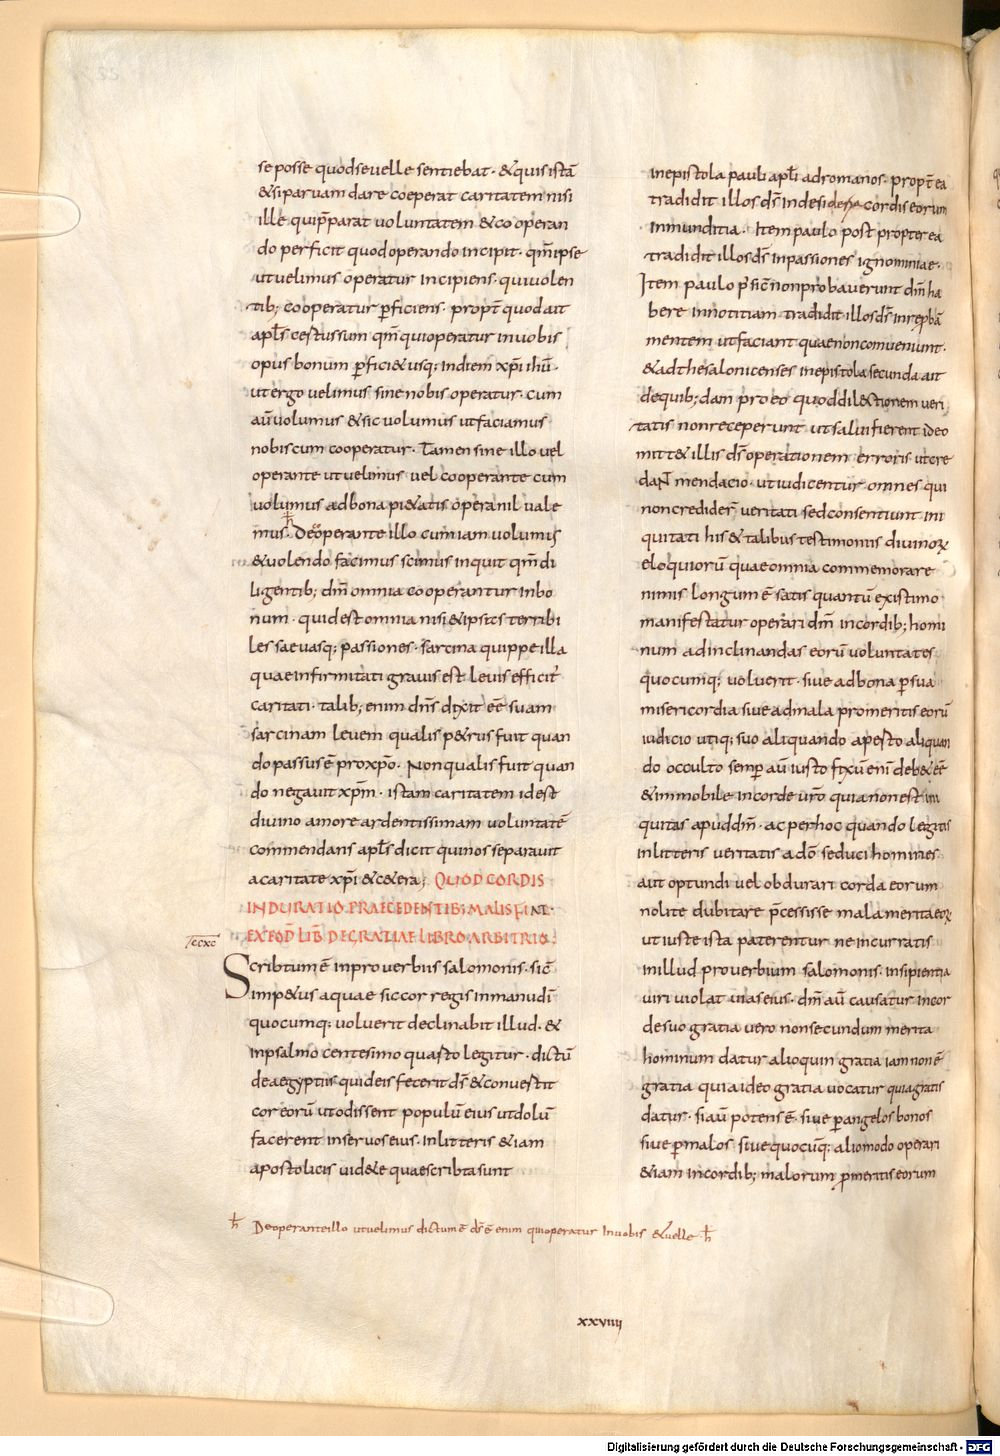 se posse quod se uelle sentiebat · & quis istā
& si paruam dare coeperat caritatem nisi
ille qui p̄parat uoluntatem & co operan
do perficit quod operando incipit · qm̄ ipse
ut uelimus operatur incipiens · qui uolen
tib; cooperatur ꝑficiens · propt̄ quod ait
apl̄s certus sum qm̄ qui operatur in uobis
opus bonum ꝑfici& usq; in diem xp̄i ihū ·
ut ergo uelimus sine nobis operatur · cum
aū uolumus & sic uolumus ut faciamus
nobiscum cooperatur · Tamen sine illo uel
operante ut uelimus uel cooperante cum
uolumus ad bona pi&atis opera nil uale
mus · De operante illo cum iam uolumus
& uolendo facimus scimus inquit qm̄ di
ligentib; dm̄ omnia co operantur in bo
num · quid est omnia nisi & ipsas terribi
les saeuasq; passiones · sarcina quippe illa
quae infirmitati grauis est leuis efficit̄
caritati · talib; enim dn̄s dixit eē suam
sarcinam leuem qualis p&rus fuit quan
do passus ē pro xp̄o · Non qualis fuit quan
do negauit xp̄m · istam caritatem id est
diuino amore ardentissimam uoluntatē
commendans apl̄s dicit qui nos separauit
a caritate xp̄i & c&era; QUOD CORDIS
INDURATIO PRAECEDENTIB; MALIS FINT ·
EX EOD̄ LIB̄ DE GRATIAE LIBRO ARBITRIO :
ccxc
Scribtum ē in prouerbiis salomonis · sic̄
imp&us aquae sic cor regis in manu dī
quocumq; uoluerit declinabit illud · &
in psalmo centesimo quarto legitur · dictū
de aegyptiis quid eis fecerit ds̄ & conuertit
cor eorū ut odissent populū eius ut dolū
facerent in seruos eius · In litteris & iam
apostolicis uid&e quae scribta sunt
In epistola pauli apl̄i ad romanos · propt̄ ea
tradidit illos ds̄ in desideria cordis eorum
Inmunditia · Item paulo post propter ea
tradidit illos ds̄ in passiones ignominiae ·
Item paulo p̄ sic̄ non probauerunt dm̄ ha
bere in notitiam tradidit illos ds̄ in rep̄bā
mentem ut faciant quae non conueniunt ·
& ad thesalonicenses in epistola secunda ait
de quib; dam pro eo quod dil&ctionem ueri
tatis non receperunt ut salui fierent ideo
mitt& illis ds̄ operationem erroris · ut cre
dant mendacio · ut iudicentur omnes qui
non credider̄ ueritati sed consentiunt ini
quitati his & talibus testimoniis diuinoꝝ
eloquiorū quae omnia commemorare
nimis longum ē satis quantū existimo
manifestatur operari dm̄ in cordib; homi
num ad inclinandas eorū uoluntates
quocumq; uoluerit · siue ad bona ꝑ sua
misericordia siue ad mala pro meritis eorū
iudicio utiq; suo aliquando aperto aliquan
do occulto semꝑ aū iusto fixū enī deb& eē
& inmobile in corde ur̄o quia non est ini
quitas apud dm̄ · ac per hoc quando legitis
in litteris ueritatis a dō seduci homines
aut optundi uel obdurari corda eorum
nolite dubitare p̄cessisse mala merita eoꝝ
ut iuste ista paterentur ne incurratis
in illud prouerbium salomonis · insipientia
uiri uiolat uias eius · dm̄ aū causatur in cor
de suo gratia uero non secundum merita
hominum datur alioquin gratia iam non ē
gratia quia ideo gratia uocatur quia gratis
datur · si aū potens ē · siue ꝑ angelos bonos
siue ꝑ malos siue quocūq; alio modo operari
& iam in cordib; malorum ꝓ meritis eorum
De operante illo ut uelimus dictum ē ds̄ ē enim qui operatur In uobis & uelle
xxviiii
Digitalisierung gefördert durch die Deutsche Forschungsgemeinschaft - DFG